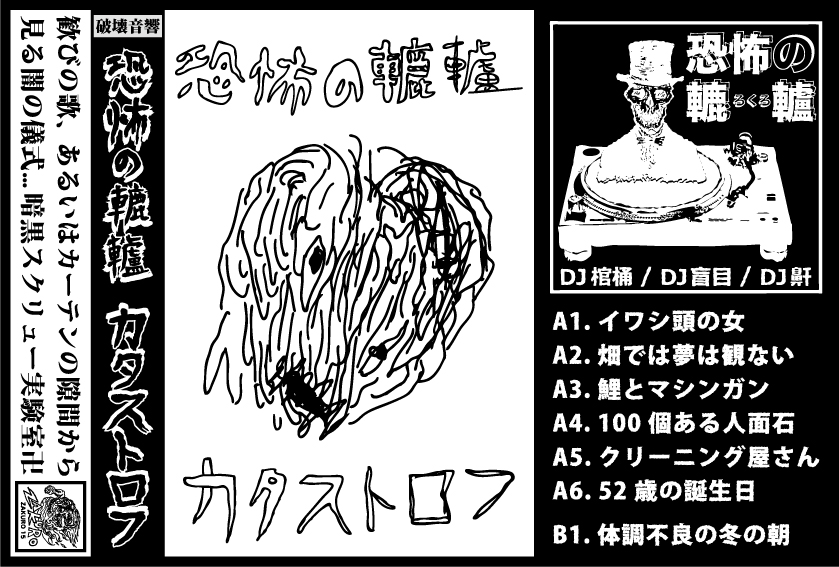 歓びの歌、あるいはカーテンの隙間から
見る闇の儀式... 暗黒スクリュー実験室卍
ZAKURO 15
破壊音響
恐怖の轆轤 カタストロフ
恐怖の轆轤
カタストロフ
恐怖の
轆轤
ろくろ
DJ 棺桶 / DJ 盲目 / DJ 鼾
A1. イワシ頭の女
A2. 畑では夢は観ない
A3. 鯉とマシンガン
A4. 100 個ある人面石
A5. クリーニング屋さん
A6. 52 歳の誕生日
B1. 体調不良の冬の朝